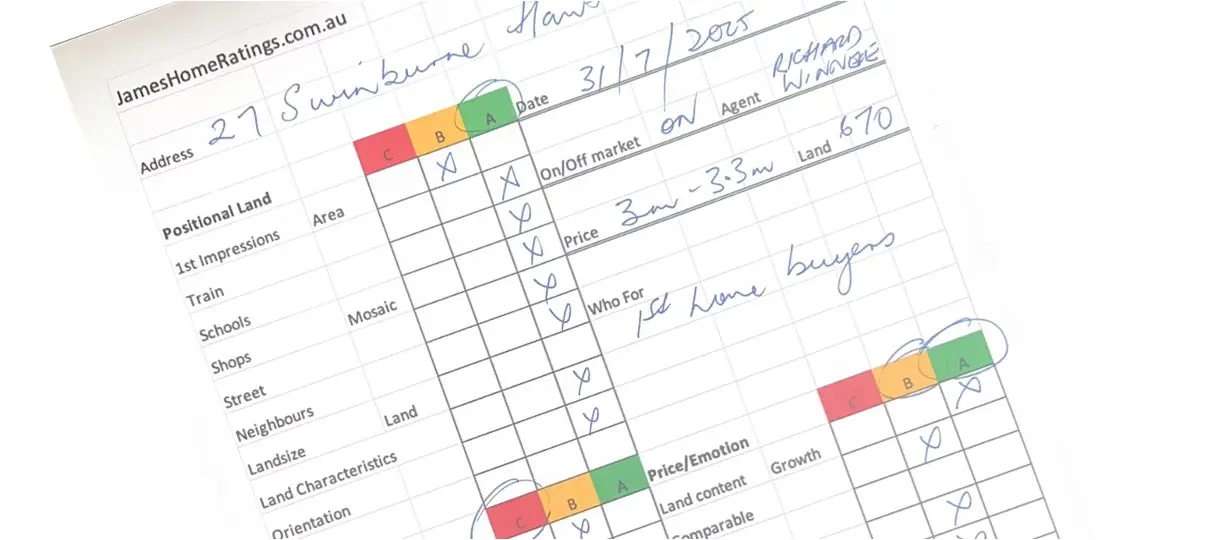 JamesHomeRatings.com.au
Address 27 Swinburne
Date 31/7/2025
On/Off market ON Agent RICHARD WINNEKE
Price 3m - 3.3m Land 670
Who For 1st home buyers
C B A
Positional Land
1st Impressions Area X
Train X
Schools X
Shops Mosaic X
Street X
Neighbours X
Landsize Land X
Land Characteristics X
Orientation
C B A
X
C B A
Price/Emotion
Land content Growth X
Comparable X
X